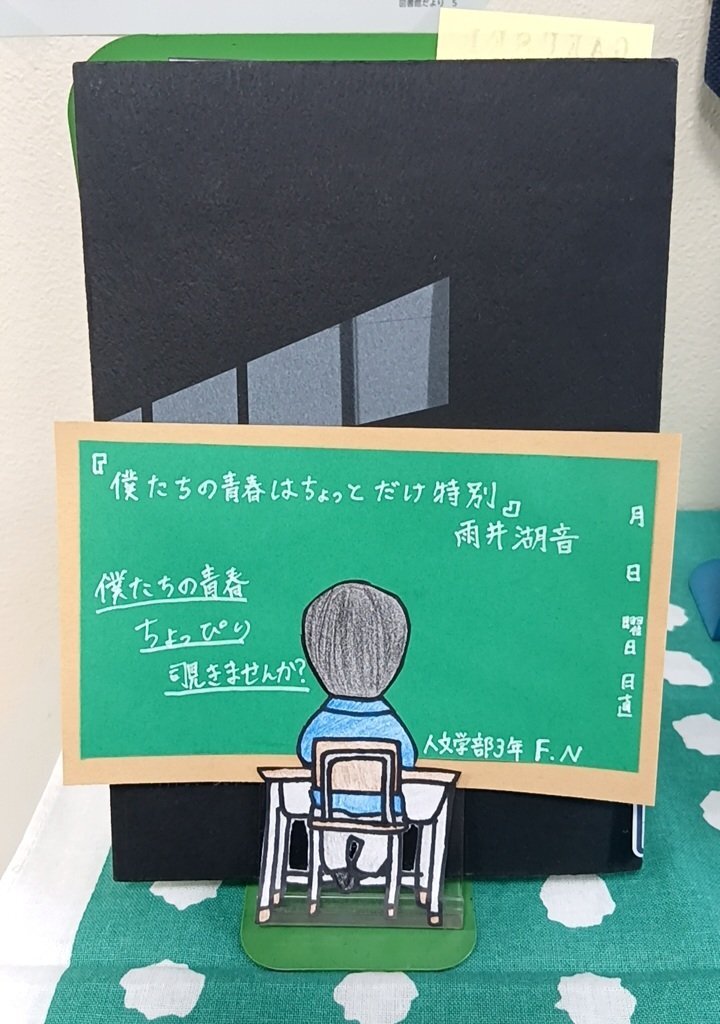 図書館だより 5
『僕たちの青春はちょっとだけ特別』
雨井湖音
僕たちの青春
ちょっぴり
覗きませんか?
月
日
曜
日
日
直
人文学部3年 F.N